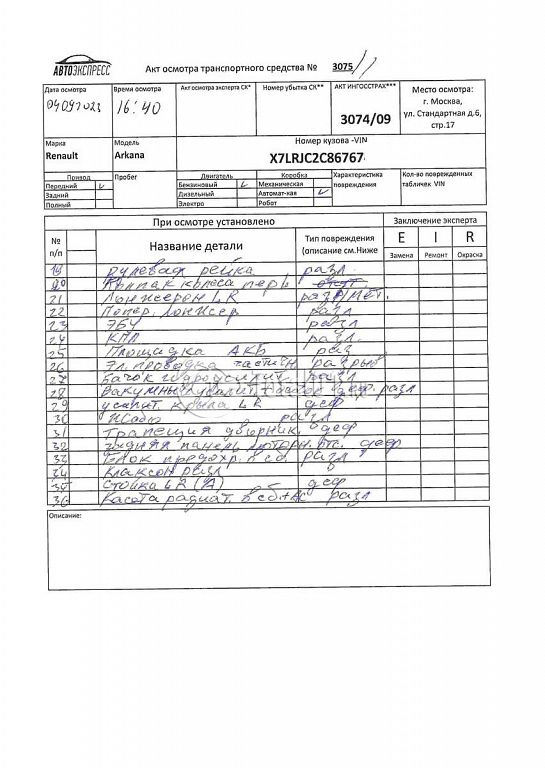 АВТОЭКСПРЕСС
Акт осмотра транспортного средства № 3075//
Дата осмотра Время осмотра Акт осмотра эксперта СК* Номер убытка СК** АКТ ИНГОССТРАХ*** Место осмотра:
04092023 16:40 3074/09 г. Москва,
ул. Стандартная д.6,
стр.17
Марка Модель Номер кузова -VIN
Renault Arkana X7LRJC2C86767
Привод Пробег Двигатель Коробка Характеристика повреждения Кол-во поврежденных табличек VIN
Передний Бензиновый Механическая
Задний Дизельный Автомат-кая
Полный Электро Робот
При осмотре установлено Заключение эксперта
№ п/п Название детали Тип повреждения (описание см.Ниже E I R
Замена Ремонт Окраска
19 рулевая рейка разл
20 Колпак колеса пер L
21 Лонжерон L R разл/мет.
22 Попер. лонжер разл
23 ЭБУ разл
24 КПП разл.
25 Площадка АКБ раз
26 Эл. проводка частич разрыв
27 Бачок гидроусилит. разл
28 Вакумный усилит деф. разл
29 усилит. крыла L R деф
30 разл
31 Трапеция дворник. деф
32 задняя панель моторн. отс. деф
33 Блок предохр. в сб. разл
34 Клаксон разл
35 Стойка L R (А) деф
36 Касета радиат. в сб. + разл
Описание: